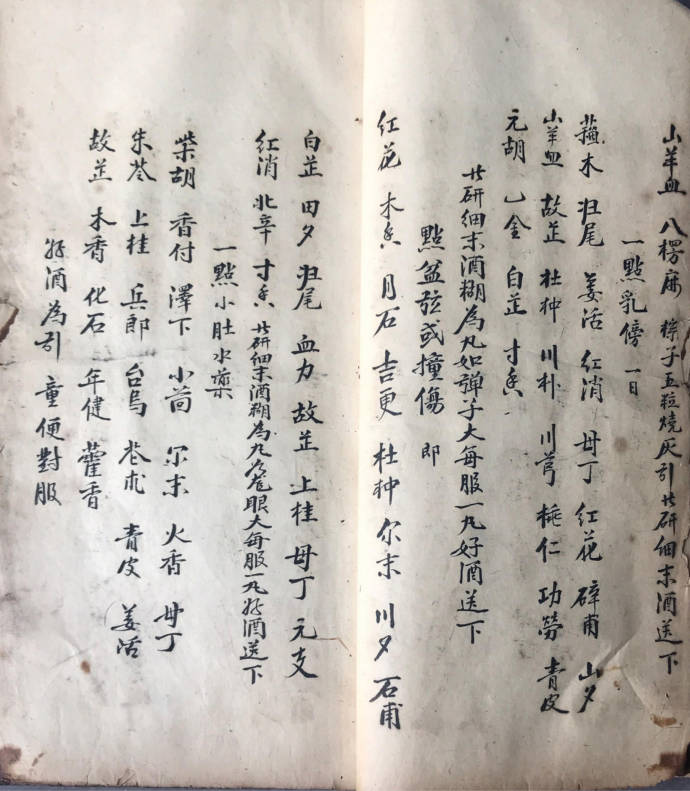 山羊血 八楞麻 棕子五粒燒灰引 共研細末酒送下
一點乳傍 一日
蘓木 归尾 姜活 红消 母丁 红花 碎甫 山夕
山羊血 故芷 杜仲 川朴 川芎 桃仁 功劳 青皮
元胡 乙金 白芷 寸香
共研細末酒糊為丸如彈子大每服一丸好酒送下
點盆弦或撞傷 即
红花 木香 月石 吉更 杜仲 尔末 川夕 石甫
白芷 田夕 归尾 血力 故芷 上桂 母丁 元支
红消 北辛 寸香 共研細末酒糊為丸龙眼大每服一丸好酒送下
一點小肚水藥
柴胡 香付 澤下 小茴 尔末 火香 母丁
朱苓 上桂 兵郎 台乌 苍朮 青皮 姜活
故芷 木香 化石 年健 藿香
好酒為引 童便對服